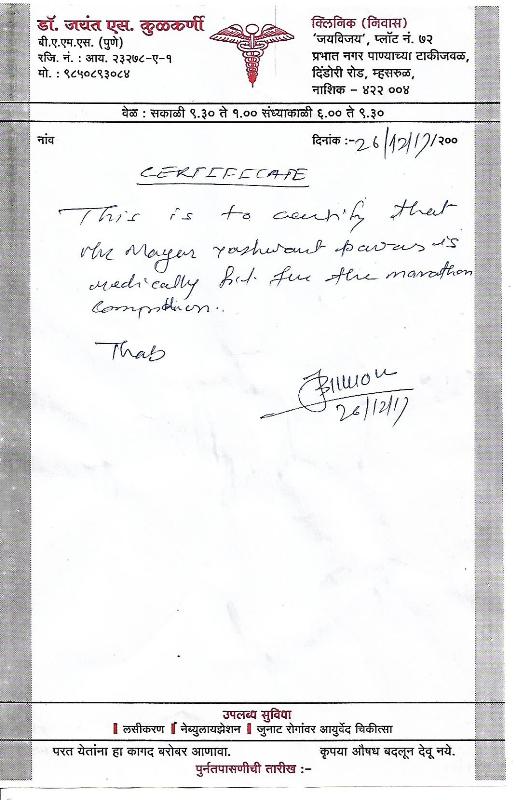 डॉ. जयंत एस. कुळकर्णी
बी.ए.एम.एस. (पुणे)
रजि. नं. : आय. २३२७८-ए-१
मो. : ९८५०८९३०८४
क्लिनिक (निवास)
'जयविजय', प्लॉट नं. ७२
प्रभात नगर पाण्याच्या टाकीजवळ,
दिंडोरी रोड, म्हसरुळ,
नाशिक - ४२२ ००४
वेळ : सकाळी ९.३० ते १.०० संध्याकाळी ६.०० ते ९.३०
नांव
दिनांक :- 26/12/17/२००
CERTIFICATE
This is to certify that
Mr Mayur Yashwant is
medically fit for the marathon
.
26/12/17
उपलब्ध सुविधा
लसीकरण नेब्युलायझेशन जुनाट रोगांवर आयुर्वेद चिकीत्सा
परत येतांना हा कागद बरोबर आणावा.
कृपया औषध बदलून देवू नये.
पुर्नतपासणीची तारीख :-